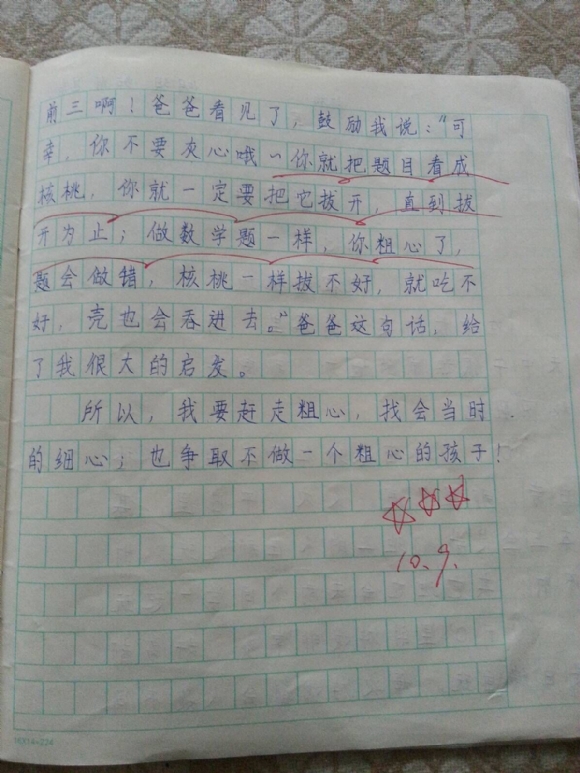 前三啊！爸爸看见了，鼓励我说："可
幸，你不要灰心哦~你就把题目看成
核桃，你就一定要把它拔开，直到拔
开为止；做数学题一样，你粗心了，
题会做错，核桃一样拔不好，就吃不
好，壳也会吞进去。"爸爸这句话，给
了我很大的启发。
所以，我要赶走粗心，找会当时
的细心；也争取不做一个粗心的孩子！
10.9.